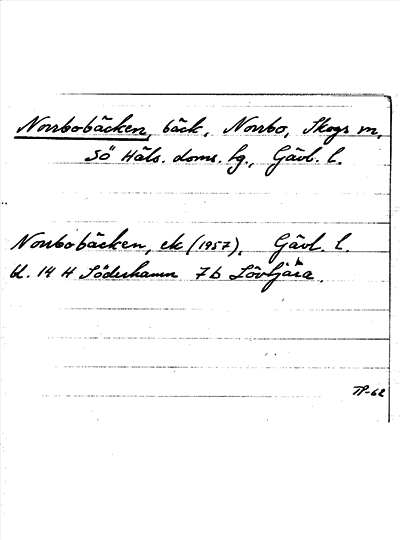 Norrbobäcken, bäck, Norrbo, Skogs sn,
Sö Häls. doms. fg., Gävl. l.
Norrbobäcken, ek (1957), Gävl. l.
bl. 14 H Söderhamn 7b
TP-62